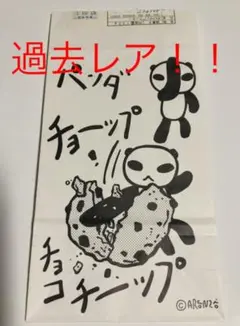 過去レア！！
パンダ
チョーップ
！
チョコチーップ
©ARANZI